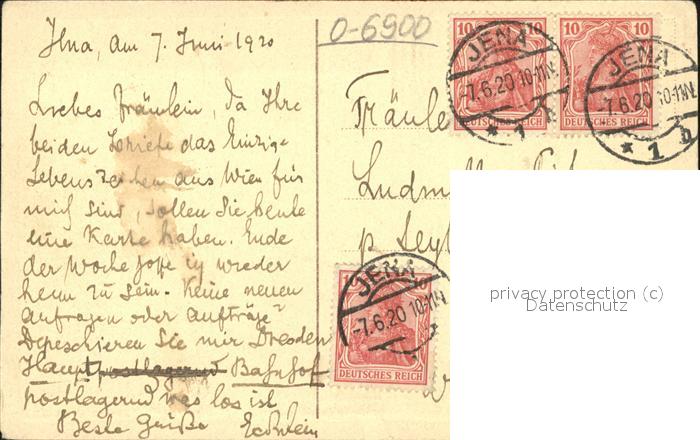 Jena, am 7. Juni 1920
0-6900
Liebes Fräulein, da Ihre
beiden das Einzige
Lebenszeichen aus Wien für
mich sind, sollen Sie heute
eine Karte haben. Ende
der Woche hoffe ich wieder
heim zu sein. Keine neuen
Anfragen oder Aufträge?
Depeschieren Sie mir Dresden
Hauptpostlagernd Bahnhof
postlagernd was los ist
Beste Grüße
Fräule
Ludm
p
10 10
DEUTSCHES REICH
JENA
-7.6.20 10-11N.
* 1 h
10 10
DEUTSCHES REICH
JENA
-7.6.20 10-11N.
* 1 h
10
DEUTSCHES REICH
JENA
-7.6.20 10-11N
privacy protection (c)
Datenschutz